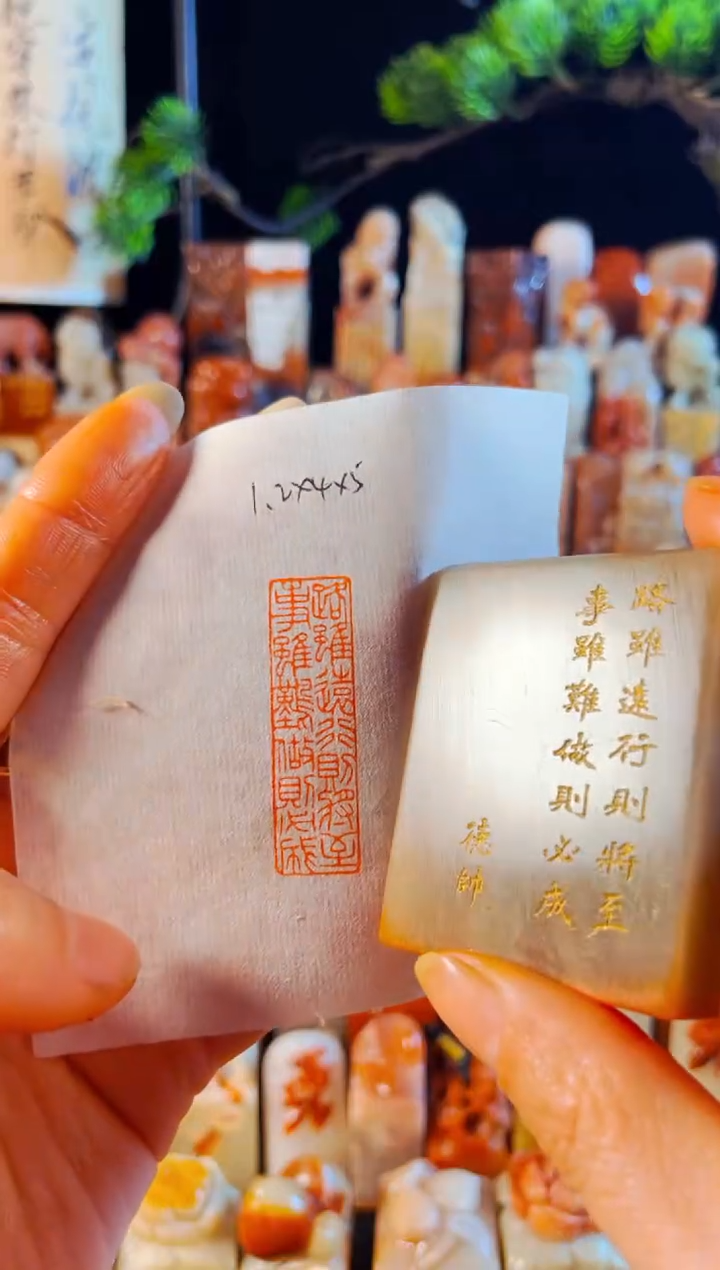 1.2x4x5
路雖遠行則將至
事雖難做則必成
路雖遠行則將至
事雖難做則必成
德帥